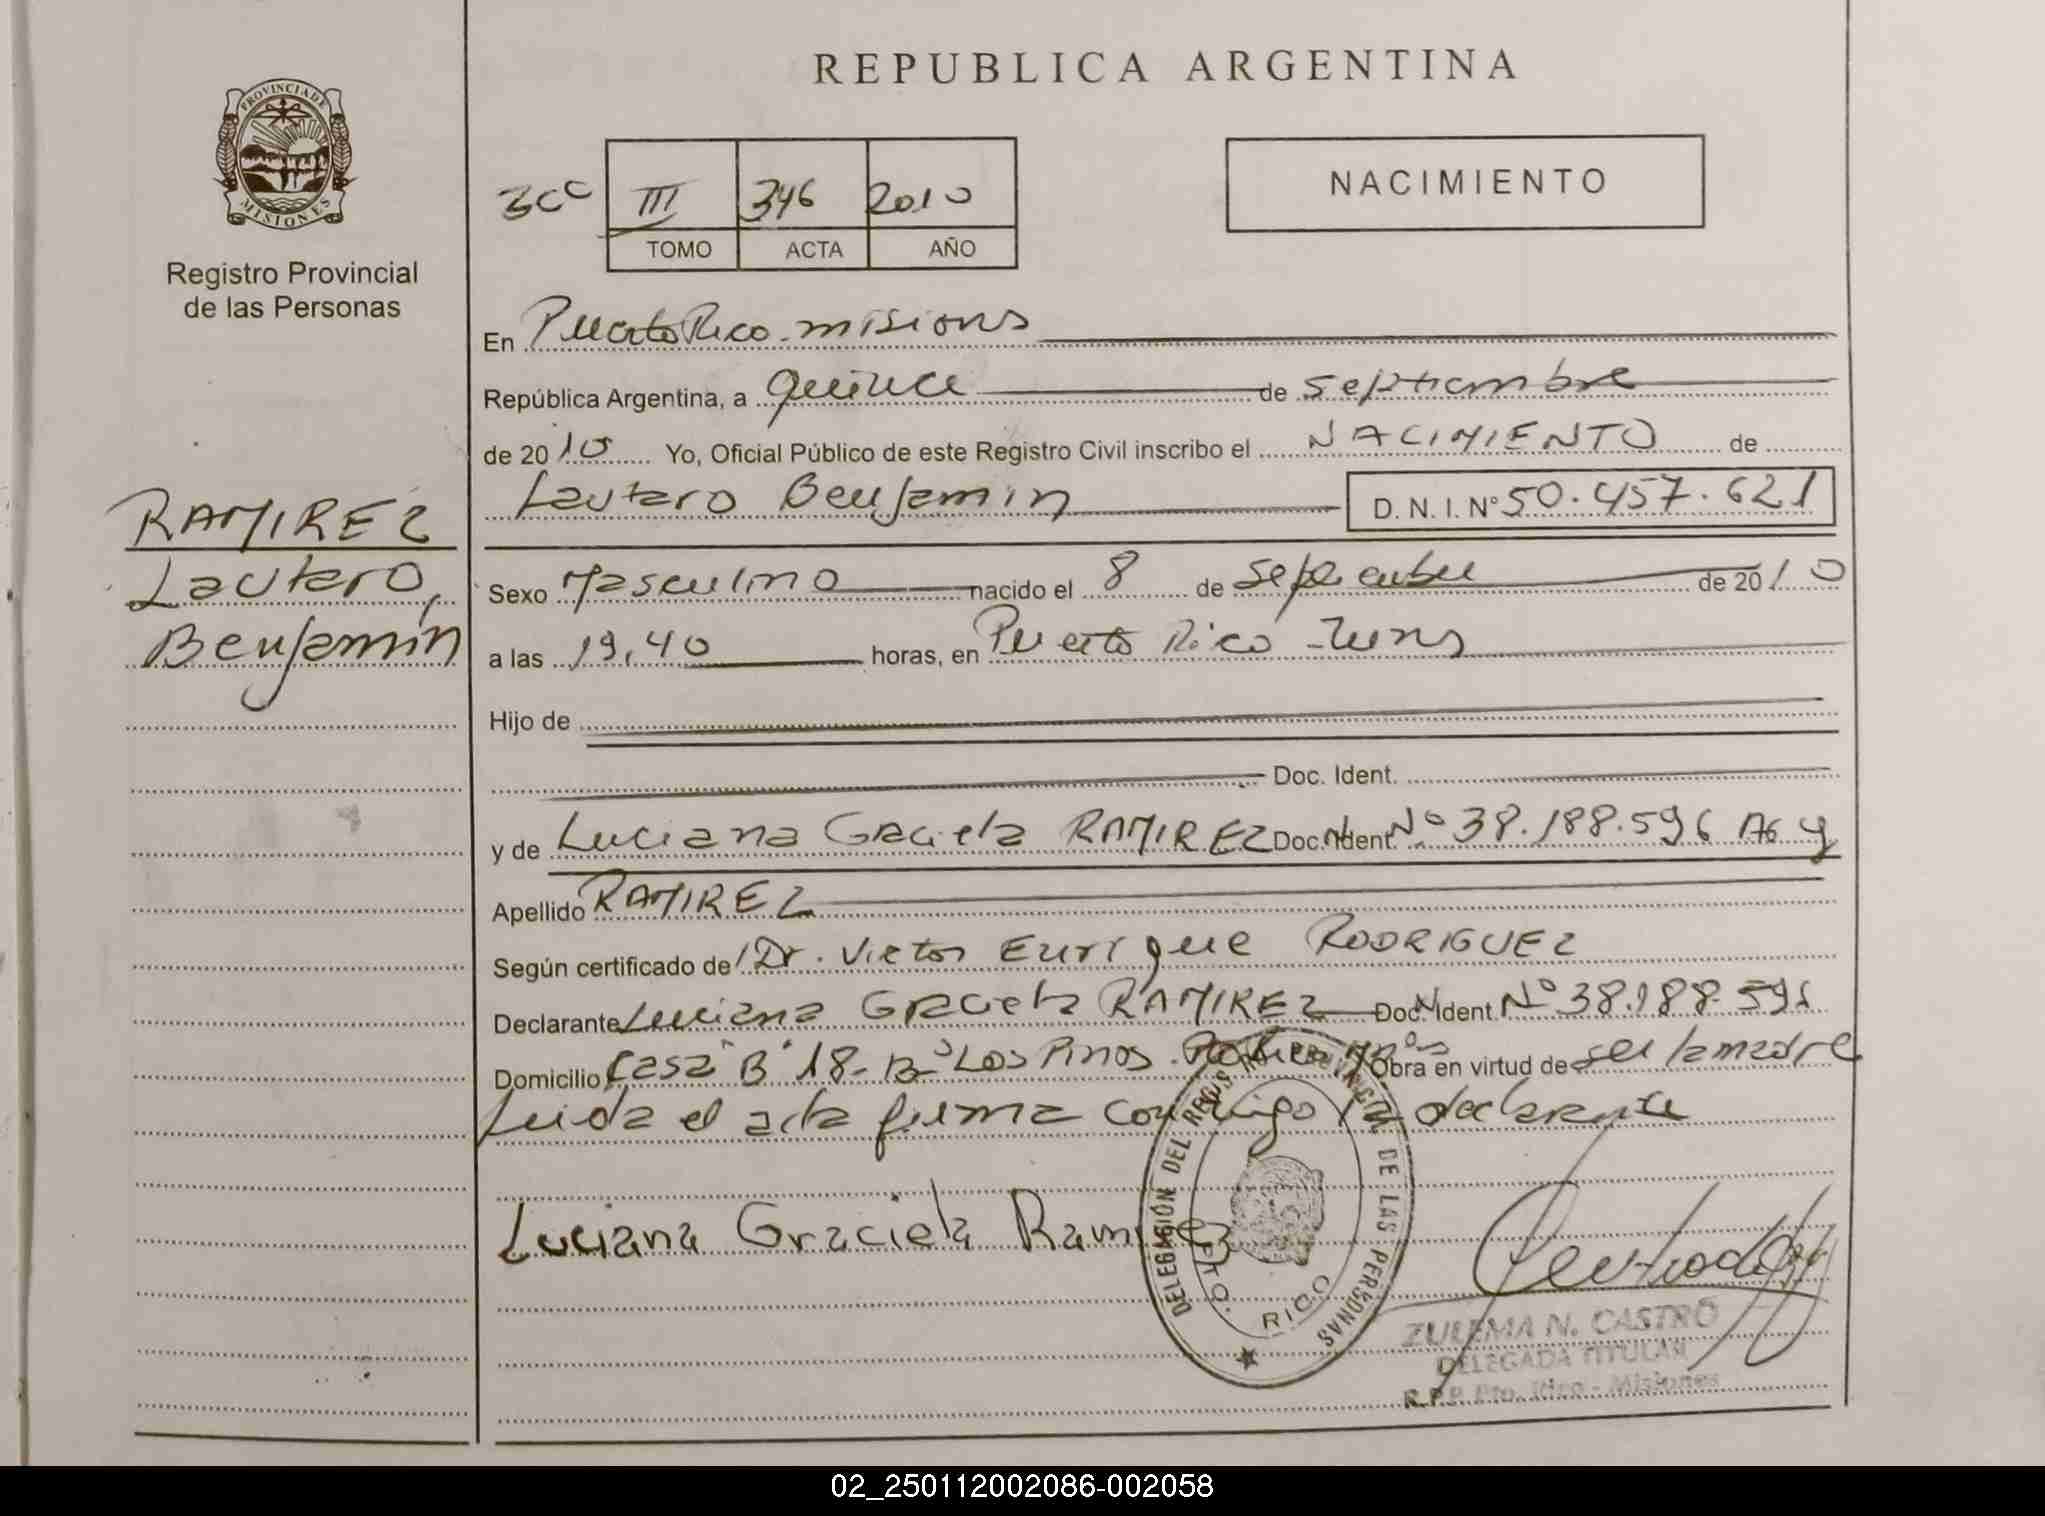 REPUBLICA ARGENTINA
PROVINCIA DE
MISIONES
Registro Provincial
de las Personas
III 346 2010
TOMO ACTA AÑO
NACIMIENTO
En Puerto Rico - misiones
República Argentina, a quince de septiembre
de 2010 Yo, Oficial Público de este Registro Civil inscribo el NACIMIENTO de
Lautaro Benjamin D. N. I. Nº 50.457.621
RAMIREZ
Lautaro,
Benjamín
Sexo Masculino nacido el 8 de Septiembre de 2010
a las 19,40 horas, en Puerto Rico - Mnes
Hijo de
Doc. Ident.
y de Luciana Graciela RAMIREZ Doc. Ident. Nº 38.188.596
Apellido RAMIREZ
Según certificado de Dr. Victor Enrique RODRIGUEZ
Declarante Luciana Graciela RAMIREZ Doc. Ident Nº 38.188.596
Domicilio Casa "B" 18 - Bº Los Pinos Obra en virtud de ser la madre
Leida el acta firma conmigo la declarante
Luciana Graciela Ramirez
DELEGACIÓN DEL REGISTRO PROVINCIAL DE LAS PERSONAS
PTO. RICO
ZULEMA N. CASTRO
DELEGADA TITULAR
R.P.P. Pto. Rico - Misiones
02_250112002086-002058